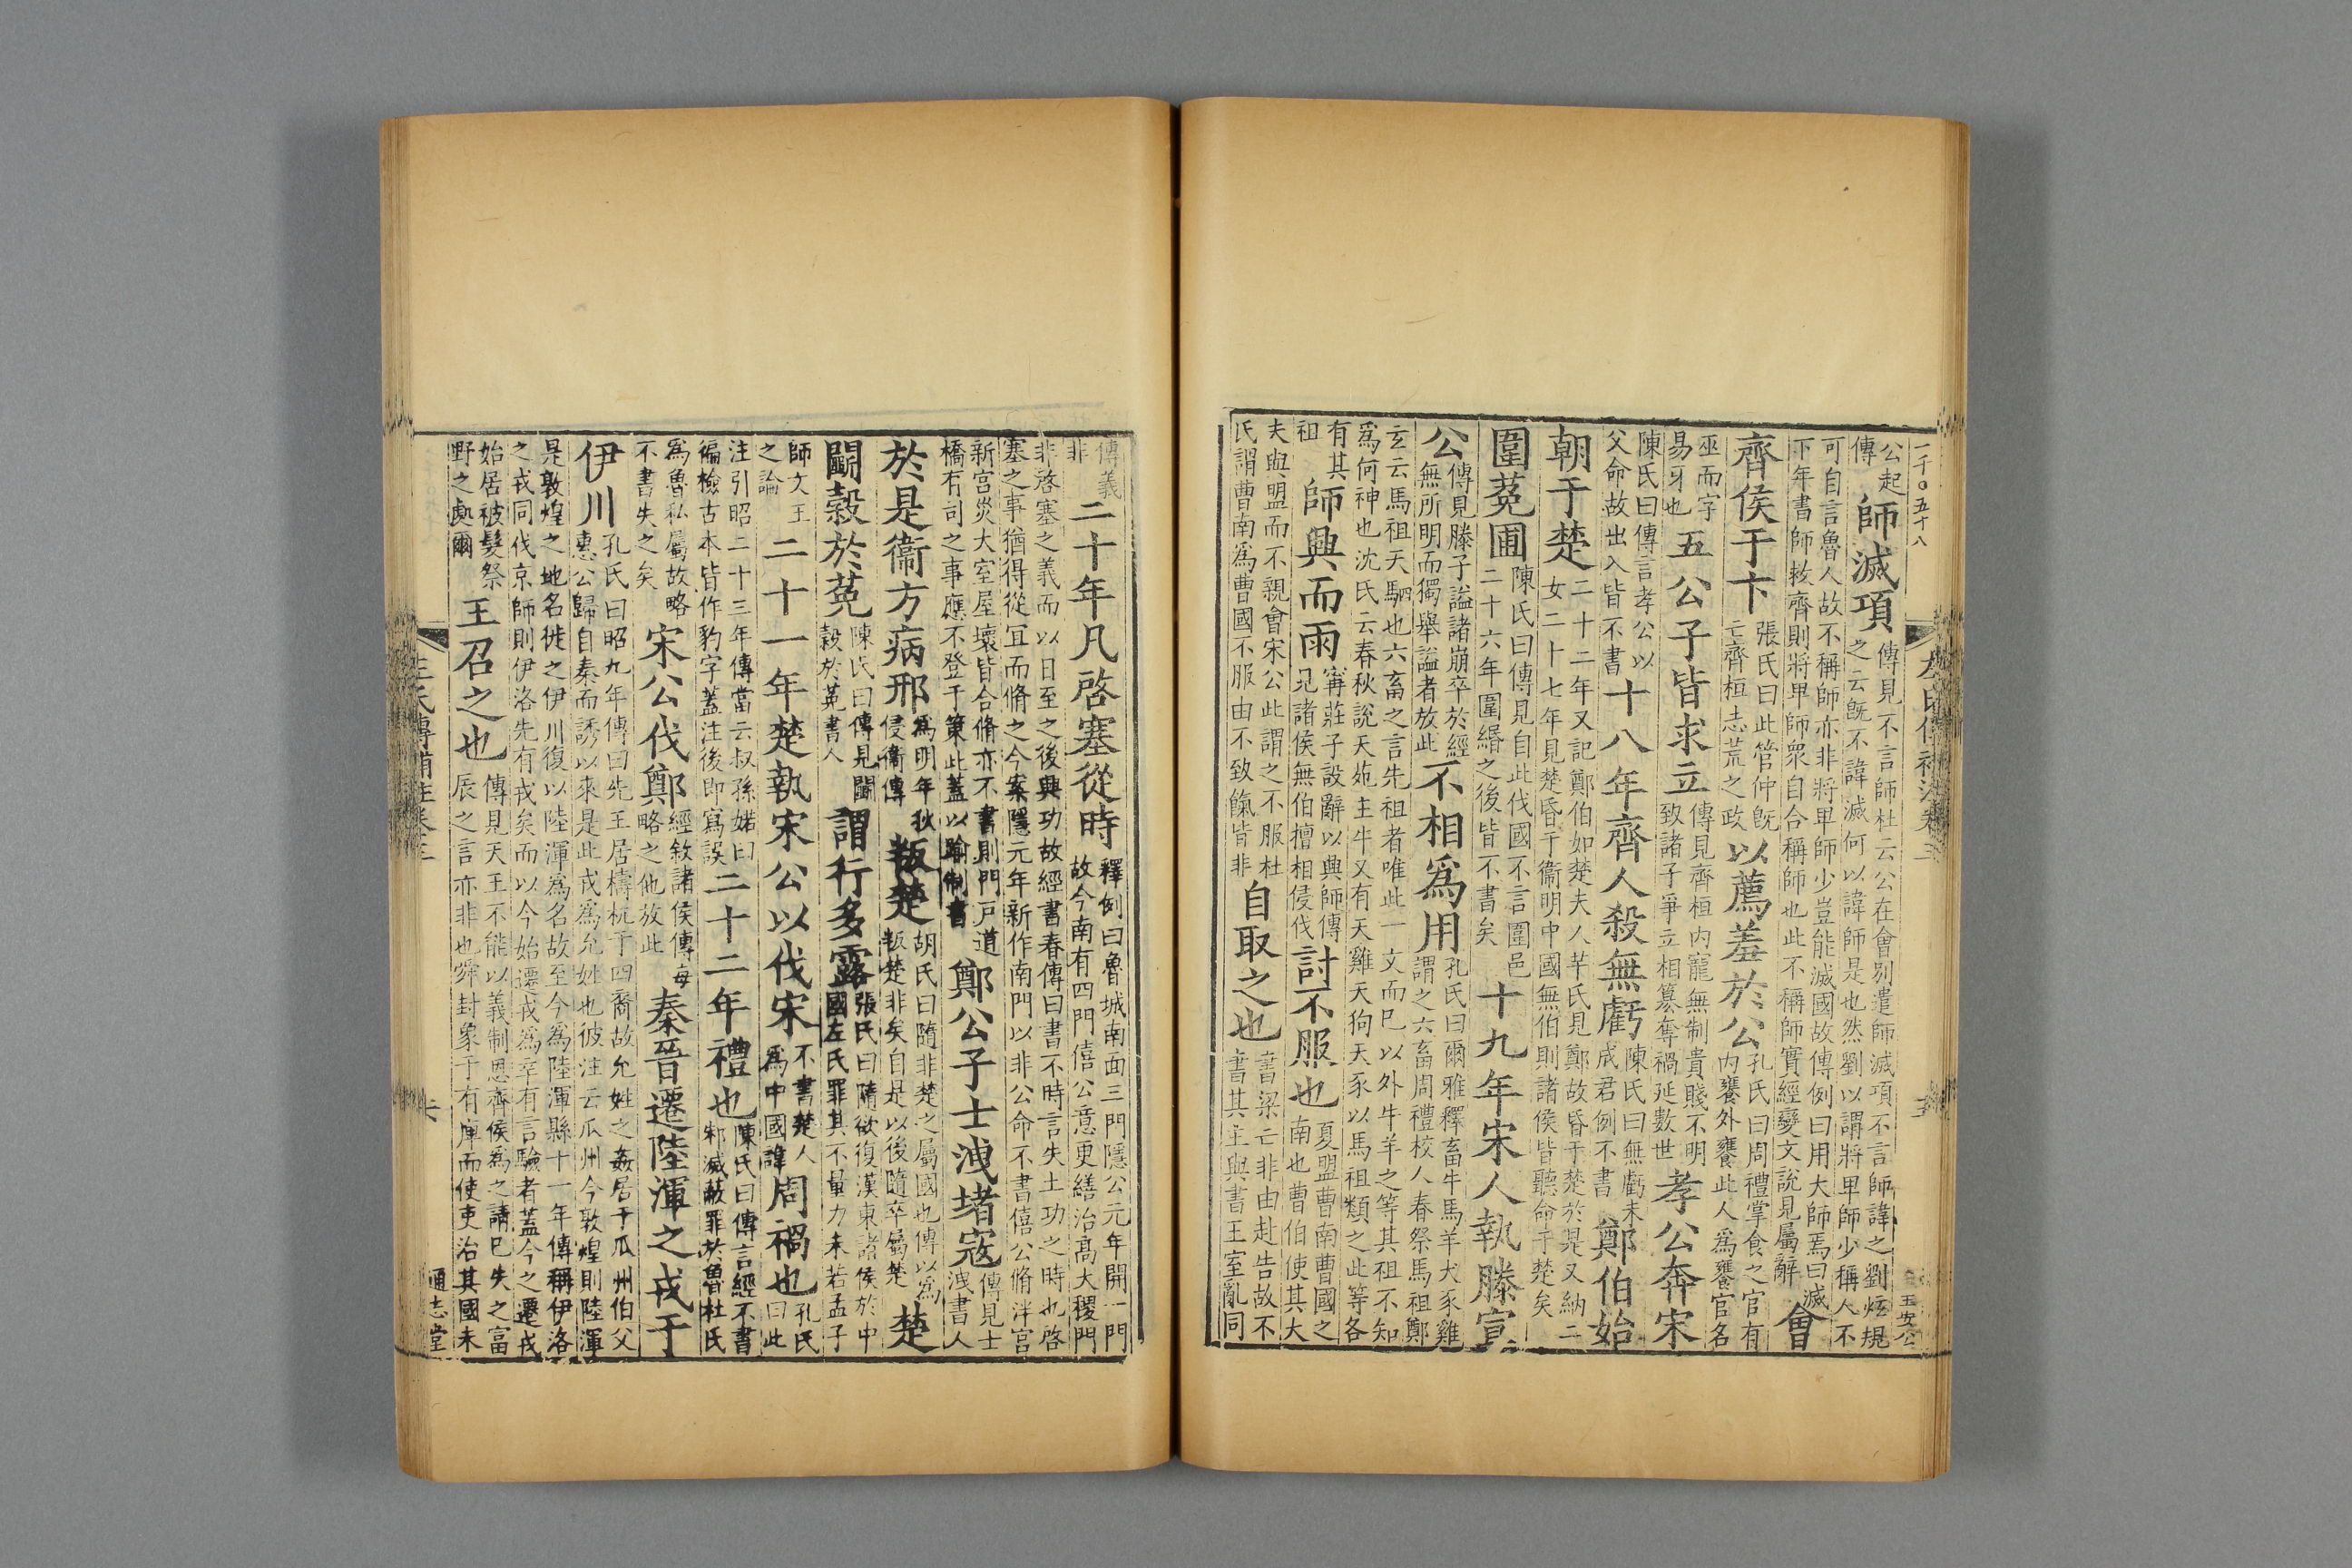 一千〇五十八
公起
傳
師滅項
傳見不言師杜云公在會別遣師滅項不言師諱之劉炫規
之云旣不諱滅何以諱師是也然劉以謂將卑師少稱人不
可自言魯人故不稱師亦非將卑師少豈能滅國故傳例曰用大師焉曰滅
下年書師救齊則將卑師衆自合稱師也此不稱師實經變文說見屬辭
會
齊侯于卞
張氏曰此管仲旣
亡齊桓志荒之政
以薦羞於公
孔氏曰周禮掌食之官有
内饔外饔此人爲饔官名
巫而字
易牙也
五公子皆求立
傳見齊桓内寵無制貴賤不明
致諸子爭立相簒奪禍延數世
孝公奔宋
陳氏曰傳言孝公以
父命故出入皆不書
十八年齊人殺無虧
陳氏曰無虧未
成君例不書
鄭伯始
朝于楚
二十二年又記鄭伯如楚夫人芊氏見鄭故昏于楚於是又納二
女二十七年見楚昏于衞明中國無伯則諸侯皆聽命于楚矣
圍菟圃
陳氏曰傳見自此伐國不言圍邑
二十六年圍緡之後皆不書矣
十九年宋人執滕宣
公
傳見滕子謚諸崩卒於經
無所明而獨舉謚者放此
不相爲用
孔氏曰爾雅釋畜牛馬羊犬豕雞
謂之六畜周禮校人春祭馬祖鄭
玄云馬祖天駟也六畜之言先祖者唯此一文而巳以外牛羊之等其祖不知
爲何神也沈氏云春秋說天苑主牛又有天雞天狗天豕以馬祖類之此等各
有其
祖
師興而雨
甯莊子設辭以興師傳
見諸侯無伯擅相侵伐
討不服也
夏盟曹南曹國之
南也曹伯使其大
夫與盟而不親會宋公此謂之不服杜
氏謂曹南爲曹國不服由不致餼皆非
自取之也
書梁亡非由赴告故不
書其主與書王室亂同
傳義
非
二十年凡啓塞從時
釋例曰魯城南面三門隱公元年開一門
故今南有四門僖公意更繕治高大稷門
非啓塞之義而以日至之後興功故經書春傳曰書不時言失土功之時也啓
塞之事猶得從宜而脩之今案隱元年新作南門以非公命不書僖公脩泮宮
新宮災大室屋壞皆合脩亦不書則門戸道
橋有司之事應不登于策此蓋以踰制書
鄭公子士洩堵寇
傳見士
洩書人
於是衞方病邢
爲明年秋
侵衞傳
叛楚
胡氏曰隨非楚之屬國也傳以爲
叛楚非矣自是以後隨卒屬楚
楚
鬭穀於菟
陳氏曰傳見鬭
穀於菟書人
謂行多露
張氏曰隨欲復漢東諸侯於中
國左氏罪其不量力未若孟子
師文王
之論
二十一年楚執宋公以伐宋
不書楚人
爲中國諱
周禍也
孔氏
曰此
注引昭二十三年傳當云叔孫婼曰
徧檢古本皆作豹字蓋注後即寫誤
二十二年禮也
陳氏曰傳言經不書
邾滅蔽罪於魯杜氏
爲魯私屬故略
不書失之矣
宋公伐鄭
經敘諸侯傳每
略之他放此
秦晉遷陸渾之戎于
伊川
孔氏曰昭九年傳曰先王居檮杌于四裔故允姓之姦居于瓜州伯父
惠公歸自秦而誘以來是此戎爲允姓也彼注云瓜州今敦煌則陸渾
是敦煌之地名徙之伊川復以陸渾爲名故至今爲陸渾縣十一年傳稱伊洛
之戎同伐京師則伊洛先有戎矣而以今始遷戎爲辛有言驗者蓋今之遷戎
始居被髮祭
野之處爾
王召之也
傳見天王不能以義制恩齊侯爲之請巳失之富
辰之言亦非也舜封象于有庳而使吏治其國未
左氏傳補注卷三
通志堂